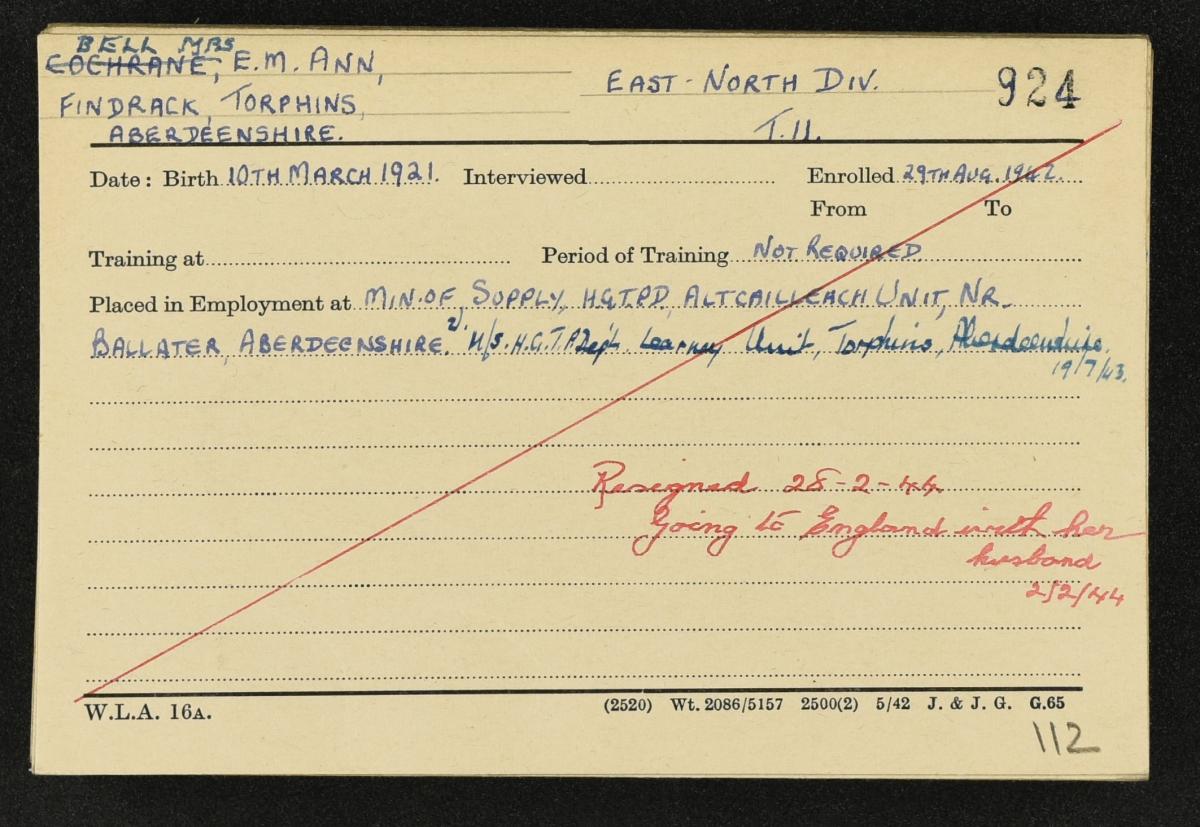 BELL MRS
COCHRANE, E.M. ANN,
FINDRACK, TORPHINS,
ABERDEENSHIRE.
EAST-NORTH DIV.
T.11.
924
Date: Birth 10TH MARCH 1921. Interviewed Enrolled 29TH AUG. 1942.
From To
Training at Period of Training NOT REQUIRED
Placed in Employment at MIN. OF SUPPLY, H.G.T.P.D, ALTCAILLEACH UNIT, NR
BALLATER, ABERDEENSHIRE. 2). M/S. H.G.T.P. Dept. Learney Unit, Torphins, Aberdeenshire.
19/7/43.
Resigned 28-2-44
Going to England with her
husband
2/2/44
W.L.A. 16A.
(2520) Wt. 2086/5157 2500(2) 5/42 J. & J. G. G.65
112